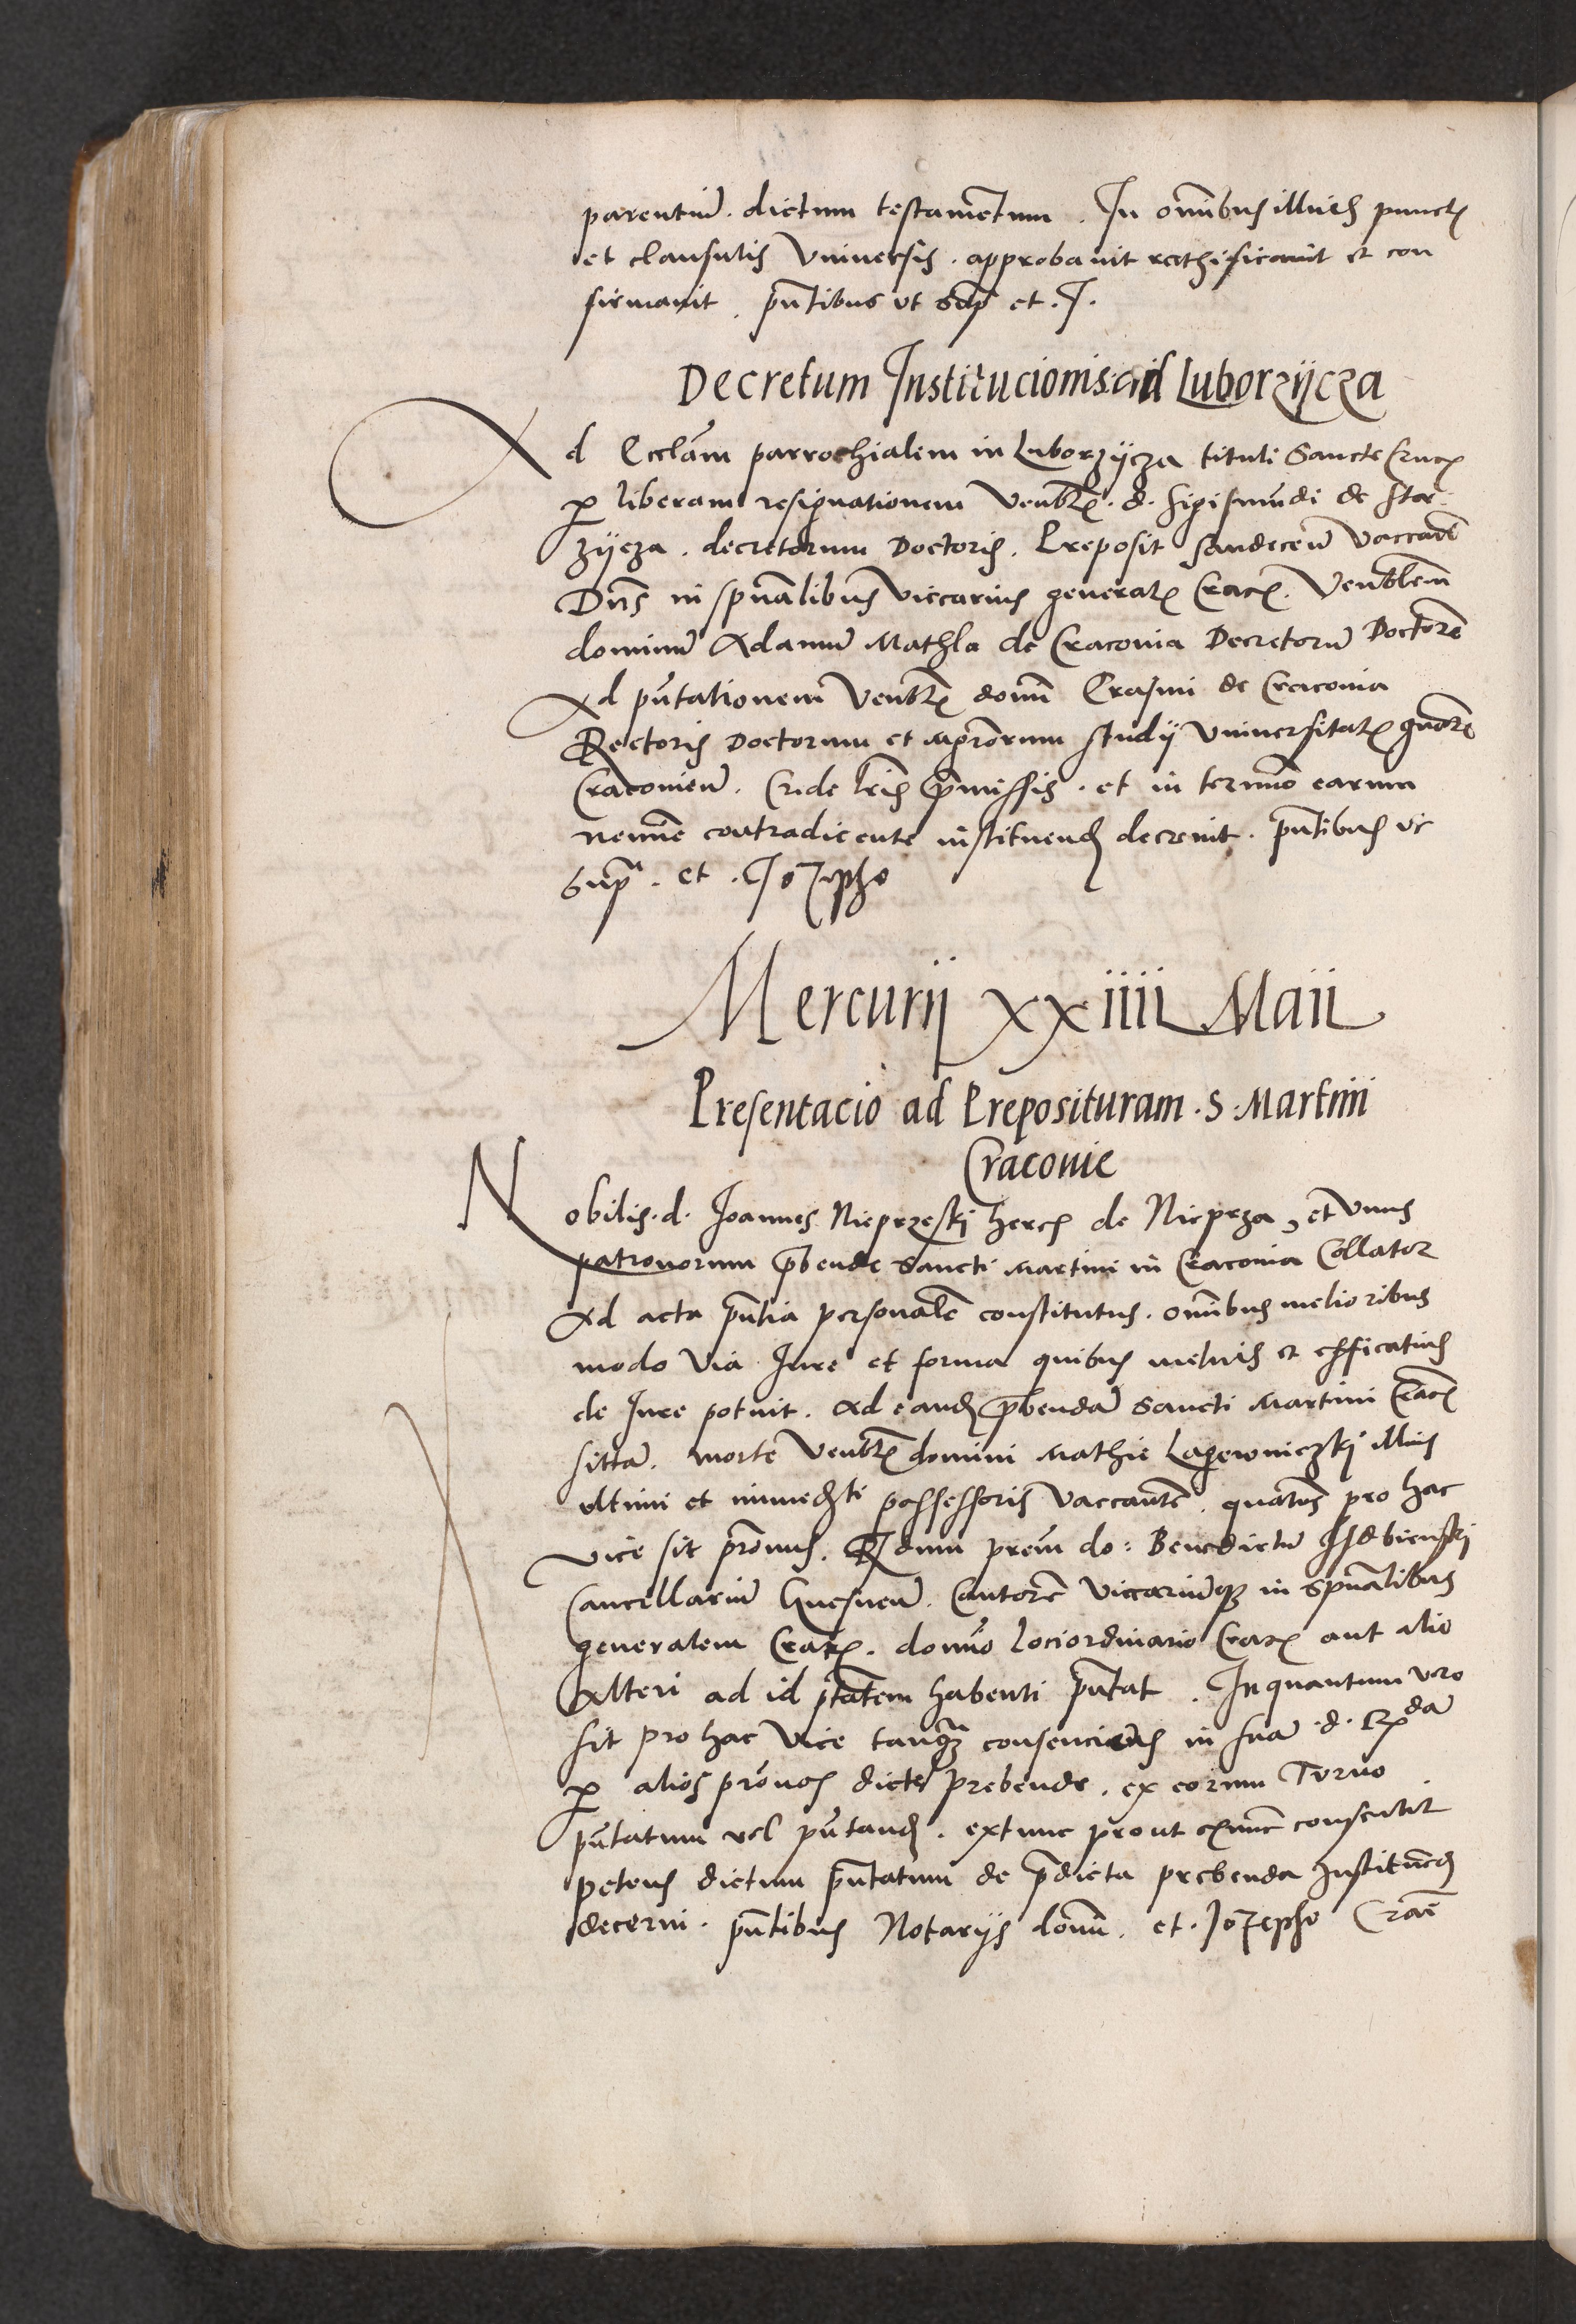 parentiū. dictum testamētum. In oīnibus illius punctꝭ
et clausulis vniuersis. approbauit rathificauit et con
firmauit. pn̄tibus vt sup̄ et. J.
Decretum Institucionis ad Luborzÿcza
Ad Eccl̄am parrochialem in Luborzÿcza tituli Sancte Crucꝭ
ꝑ liberam resignationem Venblꝭ. d. Sigismūdi de Sta
zÿcza. decretorum Doctoris. Preposit Sandeceñ vaccañ
Dn̄s in spūalibus viccarius generalꝭ Cracꝭ. Venblem̄
dominū Adamū Mathla de Craconia Decretorū Doctorē
Ad pn̄tationem Venblꝭ domī Erasmi de Craconia
Rectoris Doctorum et mgr̄orum studÿ vniuersitatꝭ
Cracouieñ. Cride lr̄is p̄missis. et in termīo earum
nemīe contradicente instituenḍ decreuit. pn̄tibus vt
supᵃ. et. Jozepho
Mercurij xxiiii Maii
Presentacio ad Preposituram. S. Martini
Craconie
Nobilis. d. Joannes Nieprzeski heres de Nieprza, et vnus
patronorum p̄bende Sancti Martini in Craconia Collator
Ad acta pn̄tia personalr̄ constitutus. oīnibus melioribus
modo via Jure et forma quibus melius et efficatius
de Jure potuit. Ad eanḍ p̄bendā Sancti Martini Cracꝭ
sitā. morte Venblꝭ domini Mathie Lagewniczkj illius
vltimi et immediti possessoris vaccantē. quatūs pro hac
vice sit pr̄onus. Rdum prēm do: Benedictū Isdbienskj
Cancellariū Gnesneñ. Cantorē viccariūqꝫ in spūalibus
generalem Cracꝭ. domīo lociordinario Cracꝭ aut alio
Alteri ad id pt̄atem habenti pn̄tat. Inquantum vero
sit pro hac vice tanqꝫ consenciens in sua. d.
ꝑ alios pr̄onos dicte prebende. ex eorum Turno
pn̄tatum vel pn̄tanḍ. extunc prout exnunc consentit
petens dictum pn̄tatum de p̄dicta prebenda Instituēḍ
decerni. pn̄tibus Notarÿs domī. et. Jozepho